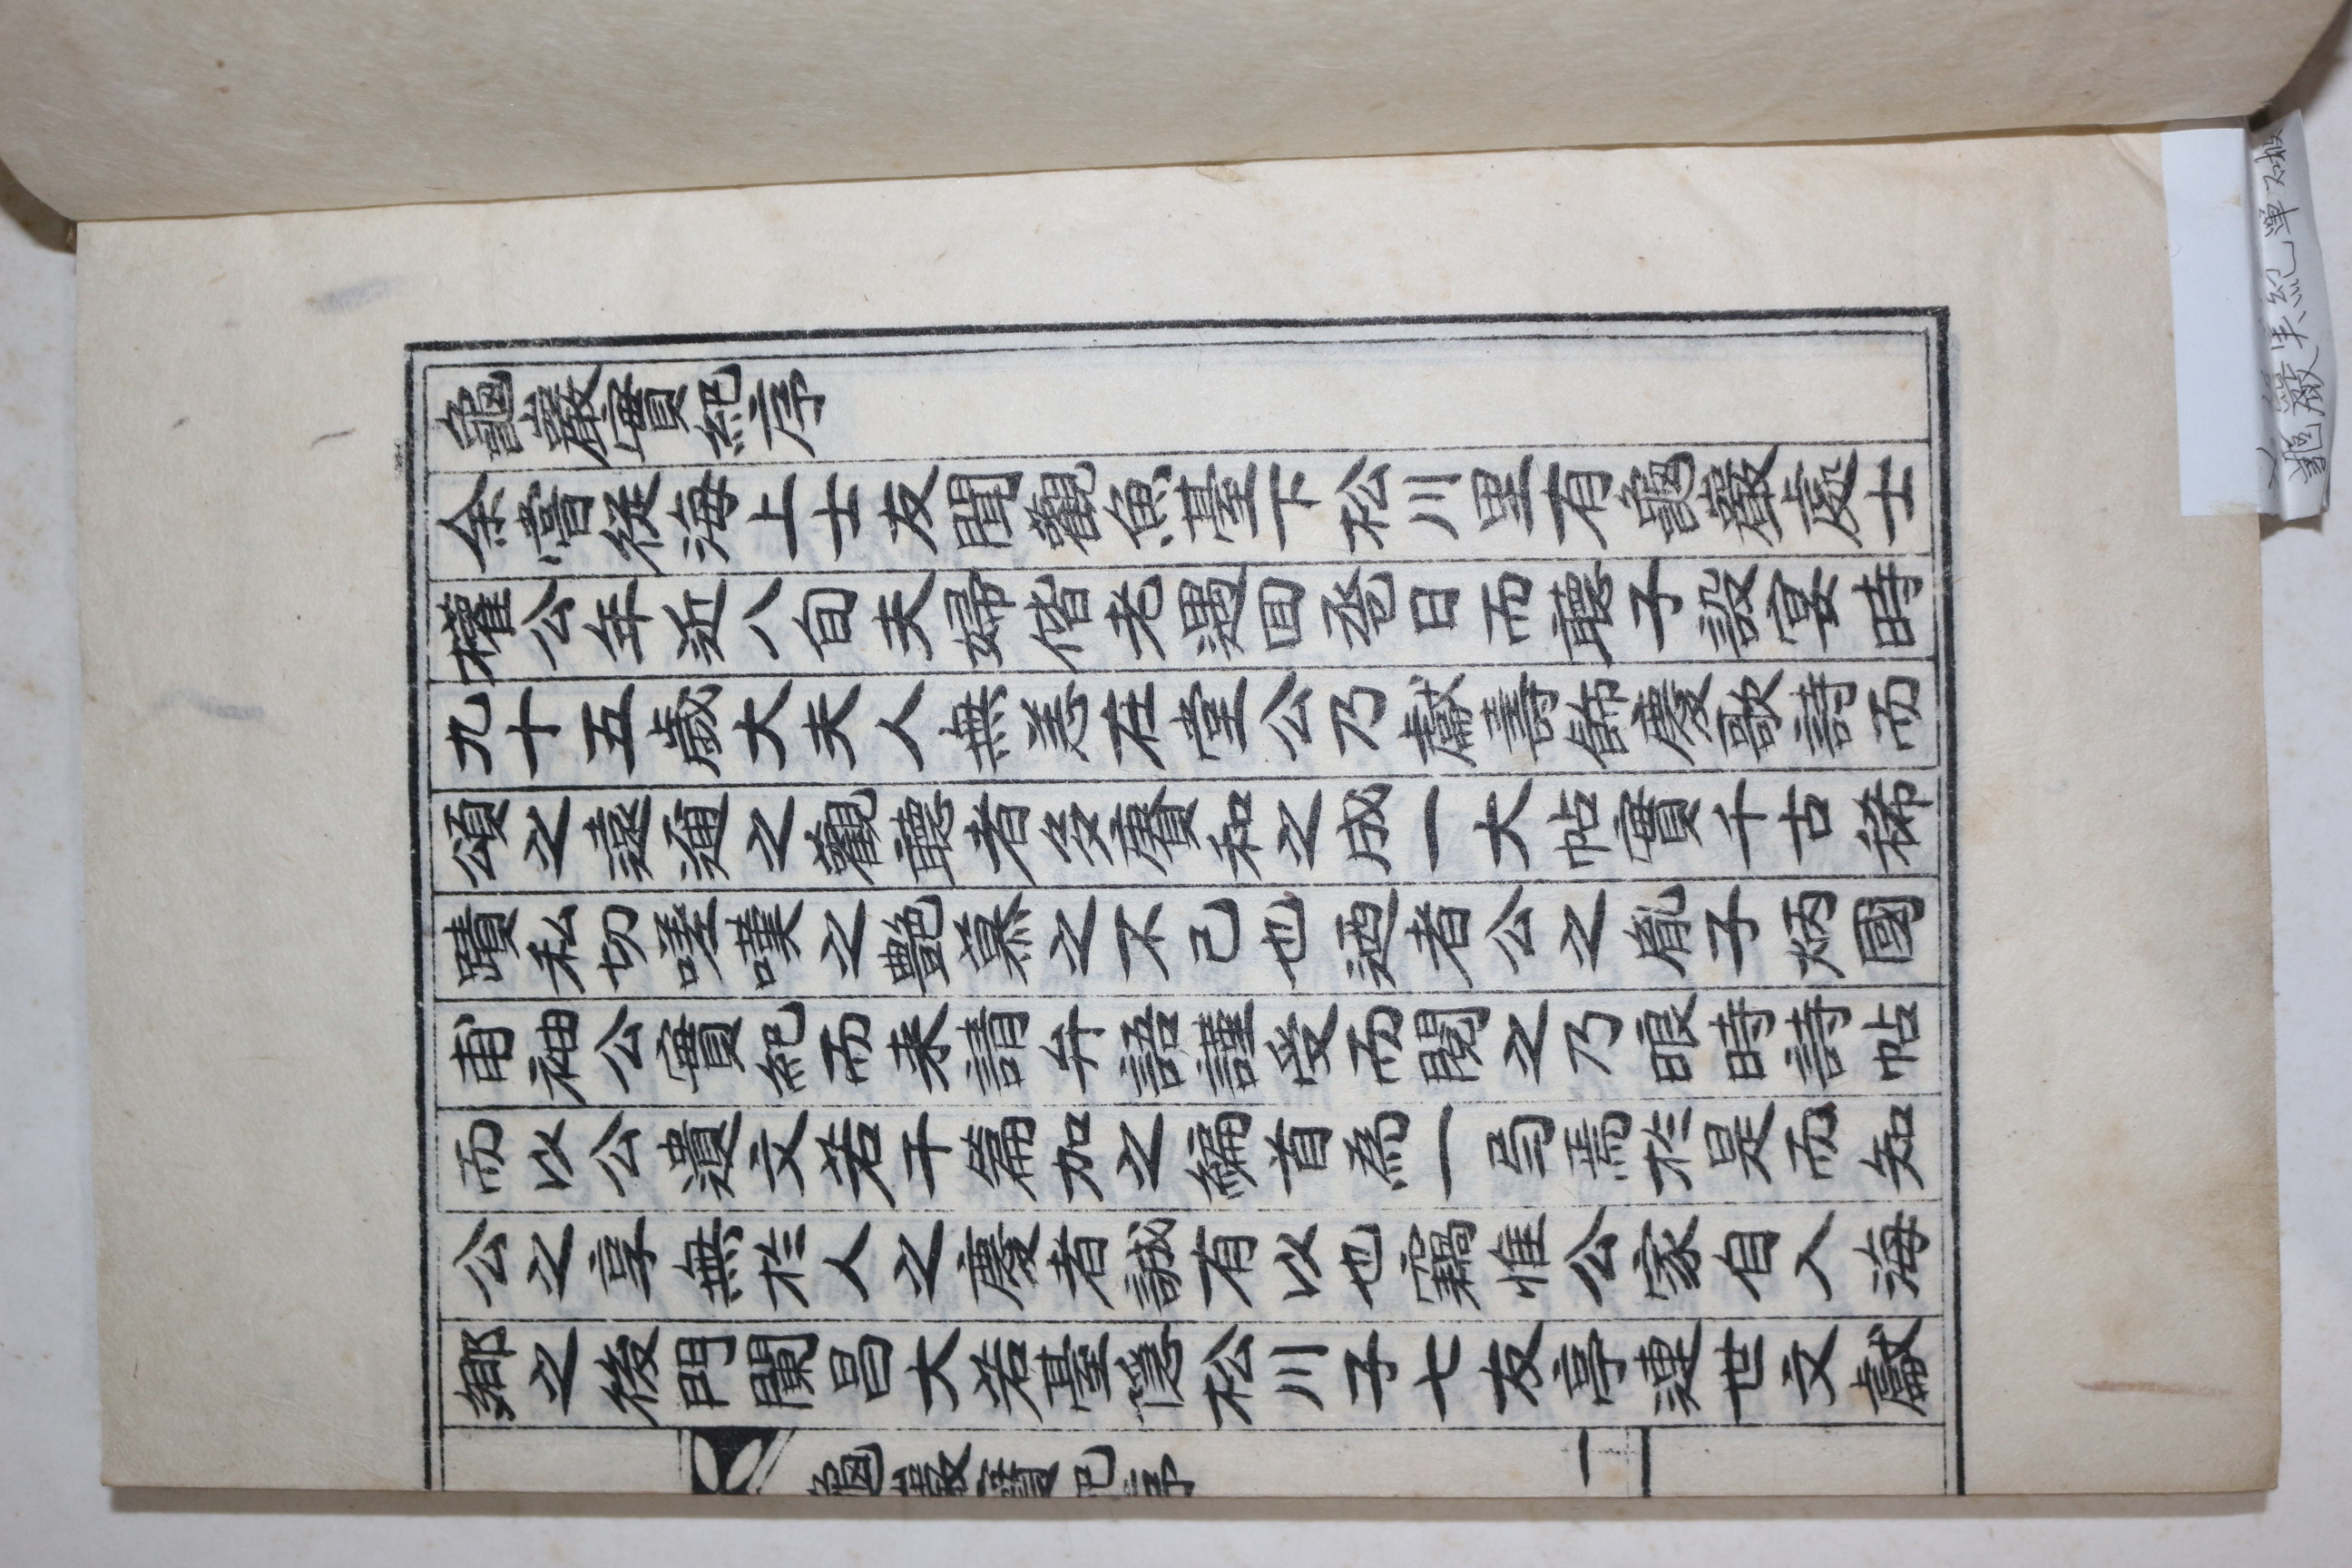 龜巖實紀序
余嘗從海上士友聞觀魚臺下松川里有龜巖處士
權公年近八旬夫婦偕老遇回巹日而聽子設宴時
九十五歲大夫人無恙在堂公乃獻壽飾慶歌詩而
頌之遠邇之觀聽者多賡和之成一大帖實千古稀
蹟私切嗟嘆之艶慕之不已也迺者公之胤子炳國
甫袖公實紀而来請弁語謹受而閱之乃曏時詩帖
而以公遺文若干篇加之編首為一局焉於是而知
公之享無於人之慶者誠有以也竊惟公家自入海
鄉之後門闌昌大若臺隱松川子七友亭連世文獻
龜巖實紀序
一
龜巖実紀單石板